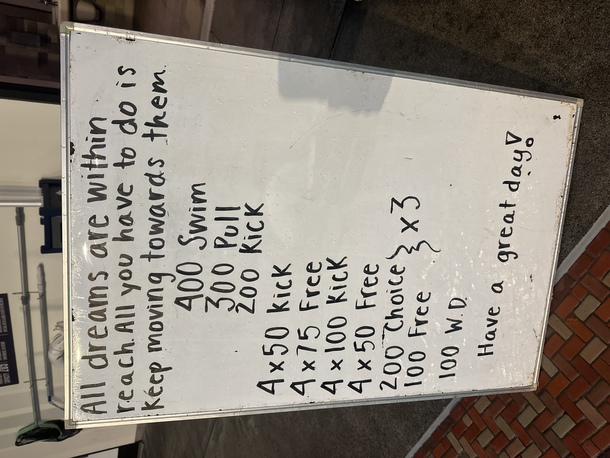 All dreams are within
reach. All you have to do is
keep moving towards them.
400 Swim
300 Pull
200 Kick
4x50 Kick
4x75 Free
4x100 Kick
4x50 Free
200 Choice
100 Free
} x3
100 W.D.
Have a great day!